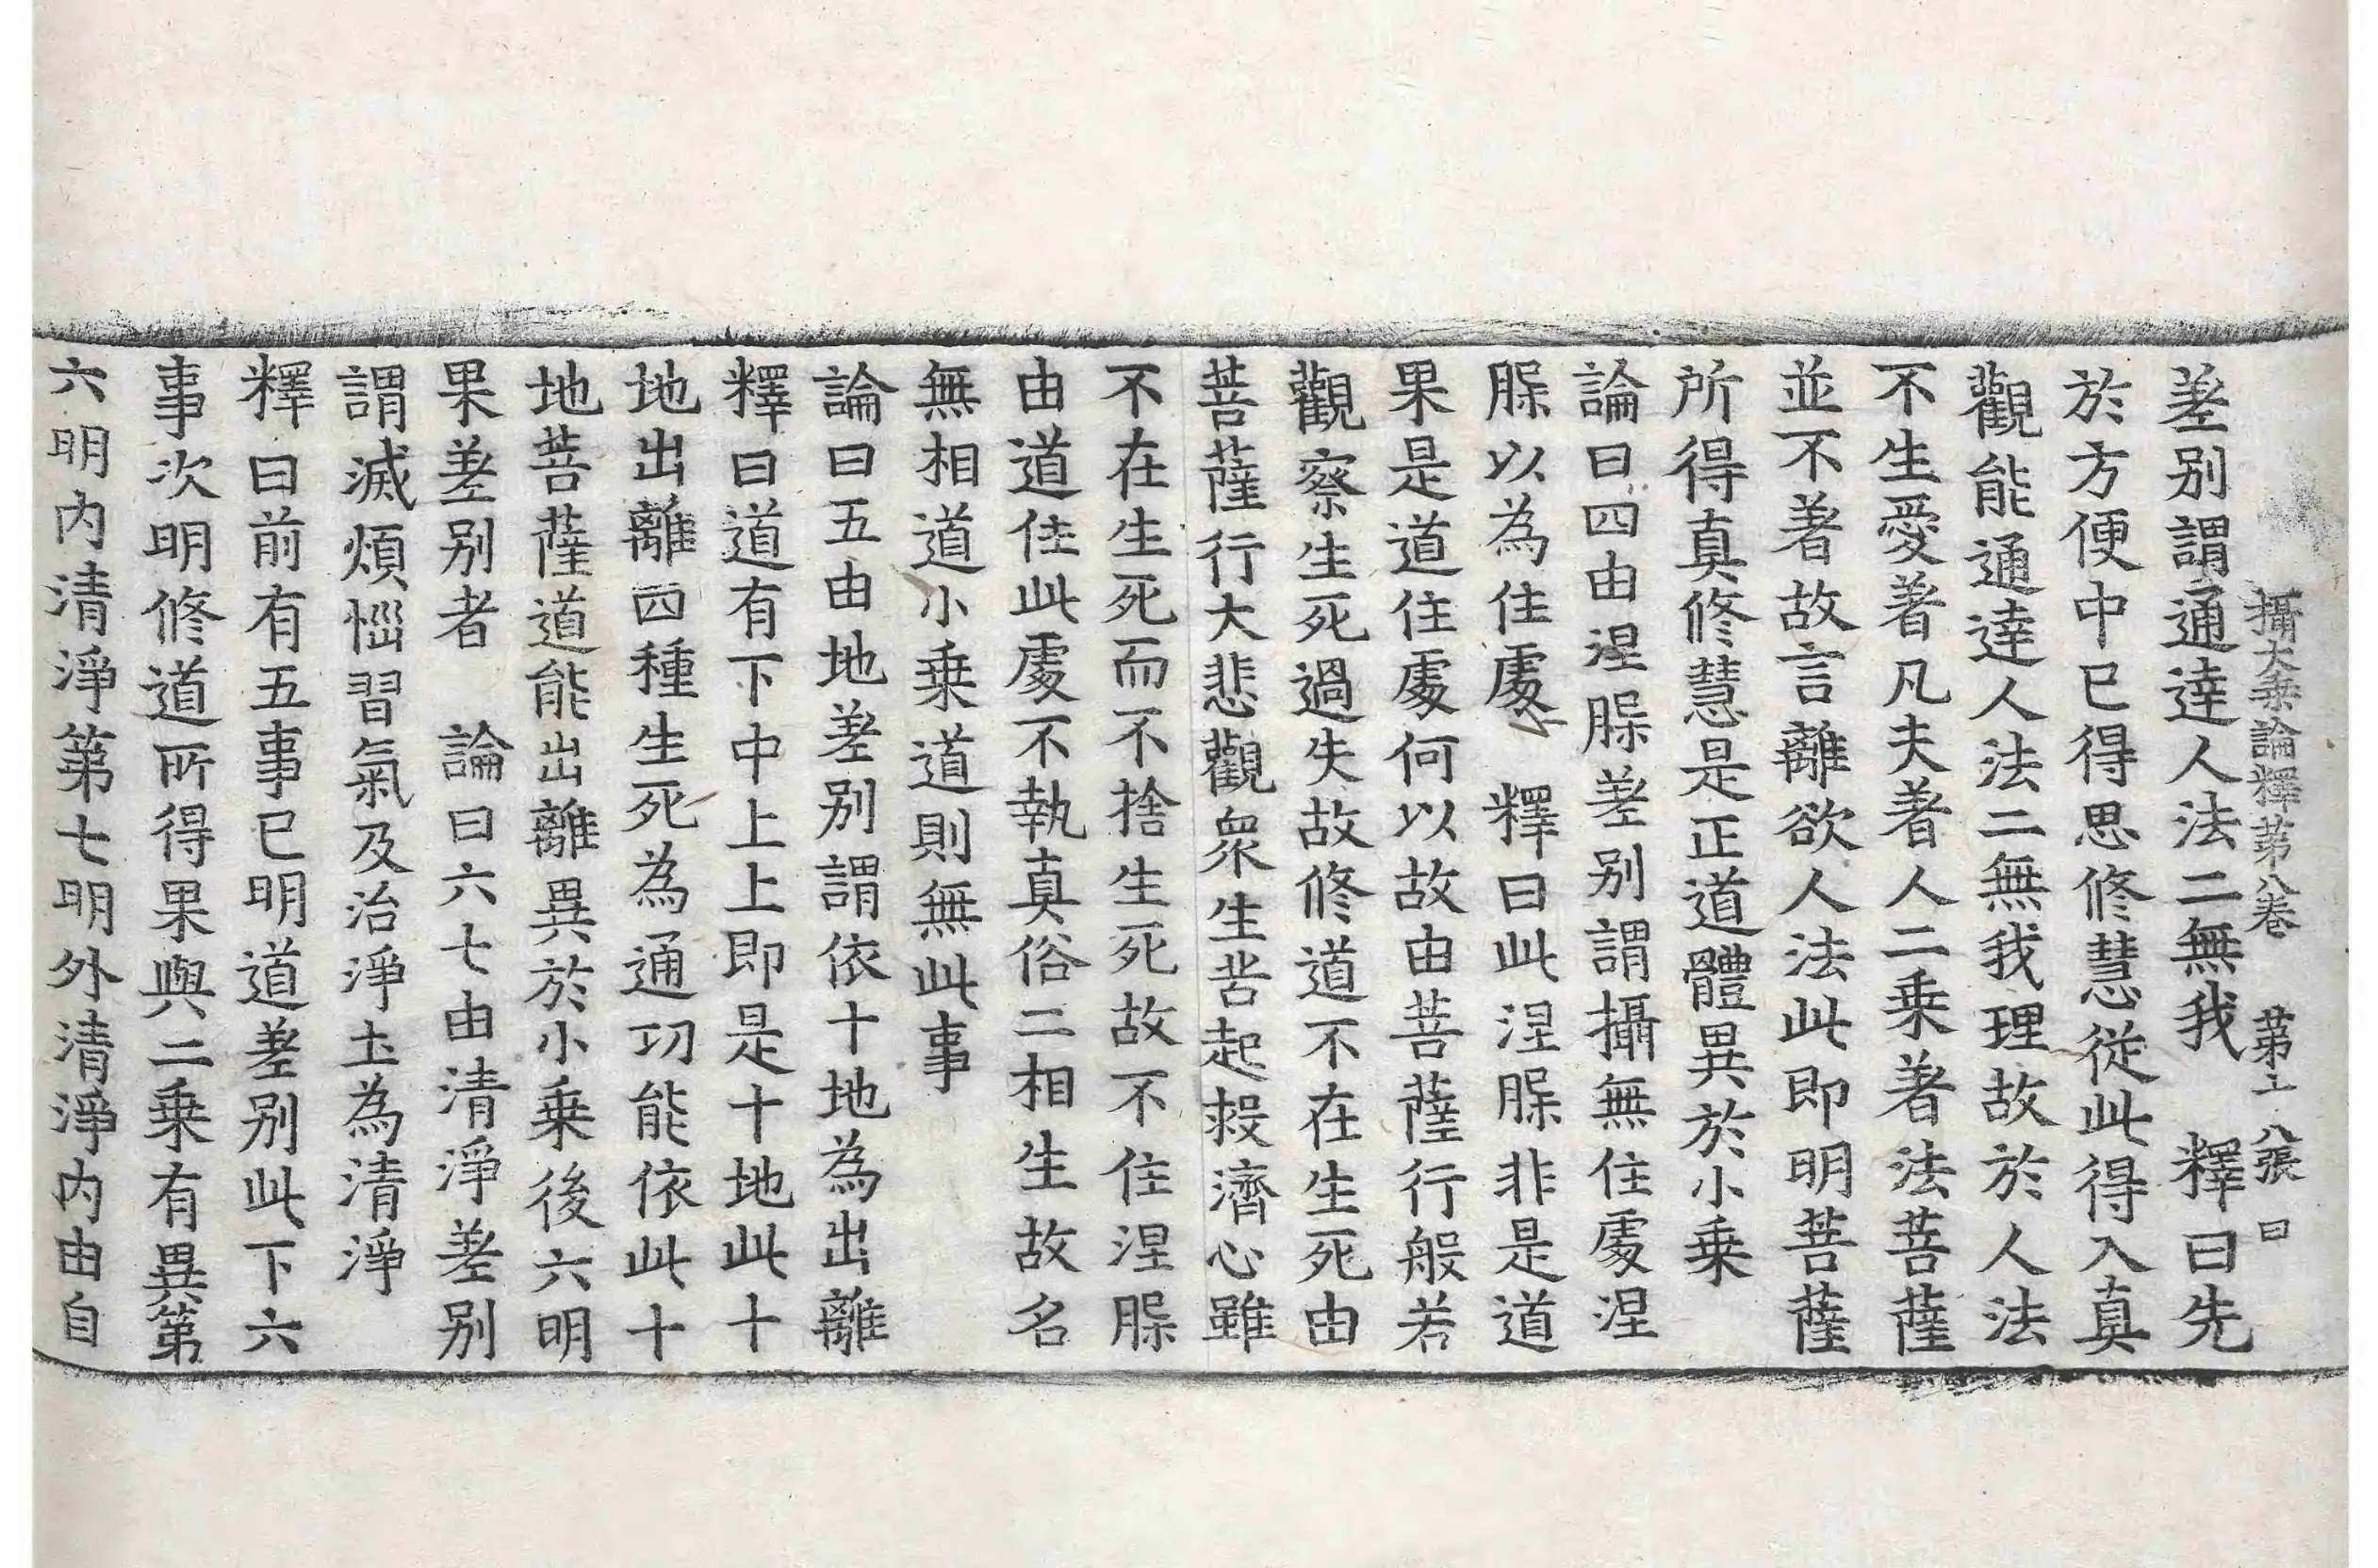 攝大乘論釋第八卷　第十八張　曰
差別謂通達人法二無我　釋曰先
於方便中已得思修慧從此得入真
觀能通達人法二無我理故於人法
不生愛著凡夫著人二乗著法菩薩
並不著故言離欲人法此即明菩薩
所得真修慧是正道體異於小乗
論曰四由涅槃差別謂攝無住處涅
槃以為住處　釋曰此涅槃非是道
果是道住處何以故由菩薩行般若
觀察生死過失故修道不在生死由
菩薩行大悲觀衆生苦起救濟心雖
不在生死而不捨生死故不住涅槃
由道住此處不執真俗二相生故名
無相道小乗道則無此事
論曰五由地差別謂依十地為出離
釋曰道有下中上上即是十地此十
地出離四種生死為通功能依此十
地菩薩道能出離異於小乗後六明
果差別者　論曰六七由清淨差別
謂滅煩惱習氣及治淨土為清淨
釋曰前有五事已明道差別此下六
事次明修道所得果與二乗有異第
六明內清淨第七明外清淨內由自